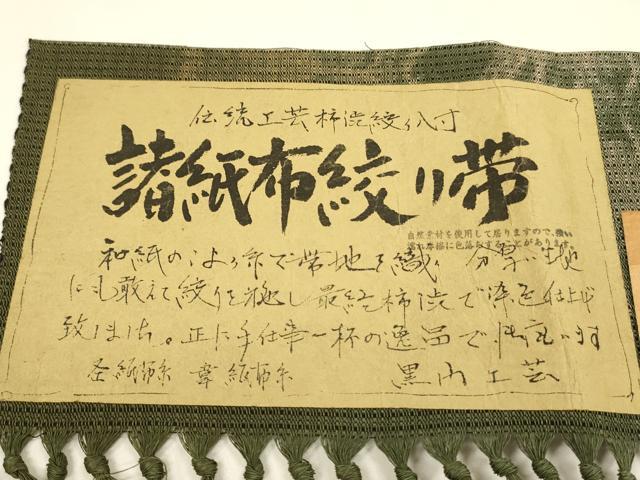 伝統工芸柿渋絞り八寸
諸紙布絞り帯
自然素材を使用して居りますので、強い
濡れ摩擦に色落ちすることがあります。
和紙のこより糸で帯地を織り 分厚い地
にも敢えて絞りを施し最終柿渋で染色仕上げ
致しました。正に手仕事一杯の逸品で御座います
紙布糸 紙布糸 黒内工芸